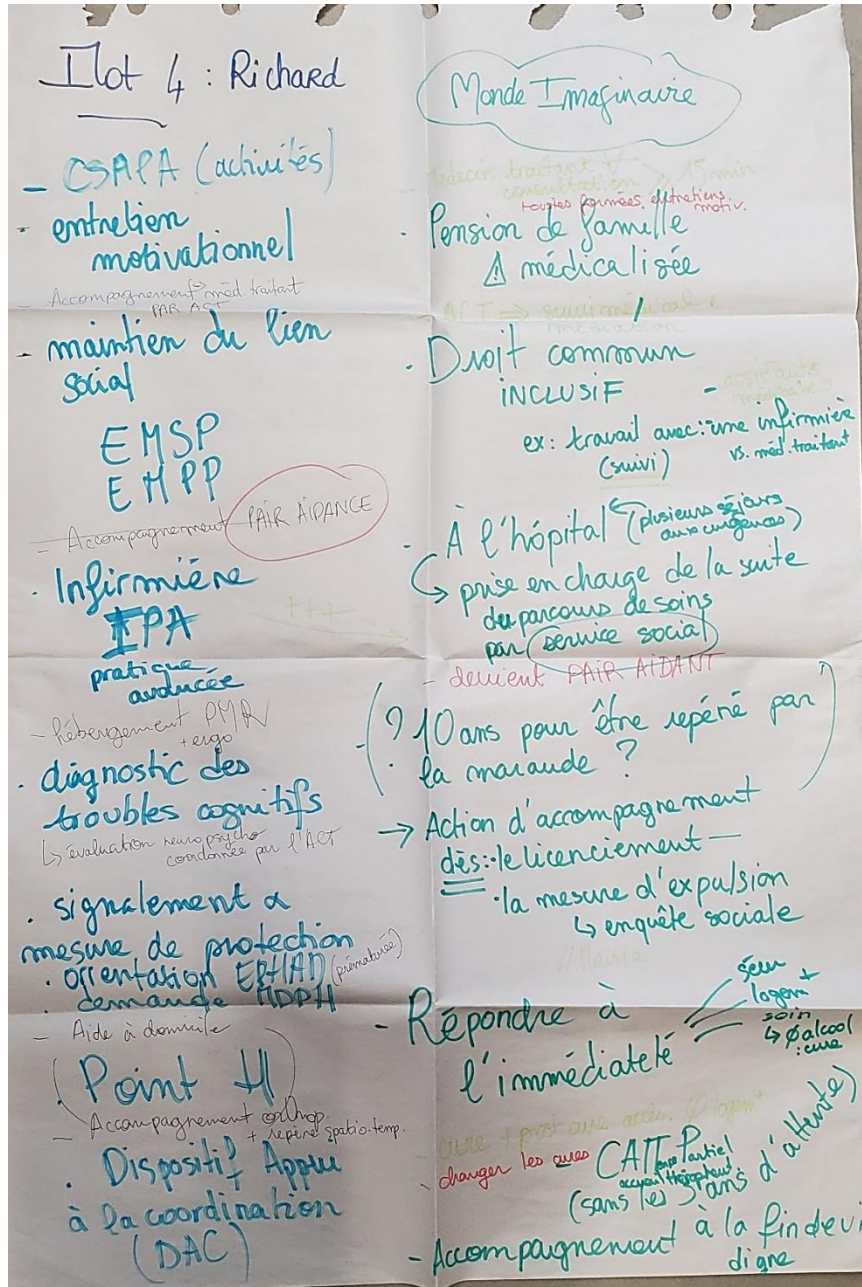 Ilot 4 : Richard
- CSAPA (activités)
- entretien
motivationnel
- Accompagnement méd. traitant
PAR ACT
- maintien du lien
social
EMSP
EMPP
- Accompagnement PAIR AIDANCE
. Infirmière
IPA
pratique
avancée
- hébergement PMR
+ ergo
. diagnostic des
troubles cognitifs
↳ évaluation neuropsycho
coordonnée par l'ACT
. signalement
mesure de protection
. orientation EPHAD (prématurée)
. demande MDPH
- Aide à domicile
(Point H)
- Accompagnement orthop.
+ repère spatio-temp.
. Dispositif Appui
à la coordination
(DAC)
Monde Imaginaire
- Médecin traitant
consultation > 15 min
formées entretiens
motiv.
. Pension de famille
⚠ médicalisée
ACT => suivi médical
médiation
. Droit commun
INCLUSIF
ex: travail avec: une infirmière
(suivi) vs. méd. traitant
- À l'hôpital (plusieurs séjours
aux urgences)
↳ prise en charge de la suite
du parcours de soins
par service social
+++
- devient PAIR AIDANT
- (? 10 ans pour être repéré par
la maraude ?)
→ Action d'accompagnement
dès: · le licenciement -
· la mesure d'expulsion
↳ enquête sociale
// Mairie
- Répondre à
l'immédiateté
logemt +
soin
↳ Ø alcool
: cure
cure + post cure
- changer les cures CATTP
Temps Partiel
accueil thérapeut.
(sans les 3 ans d'attente)
- Accompagnement à la fin de vie
digne